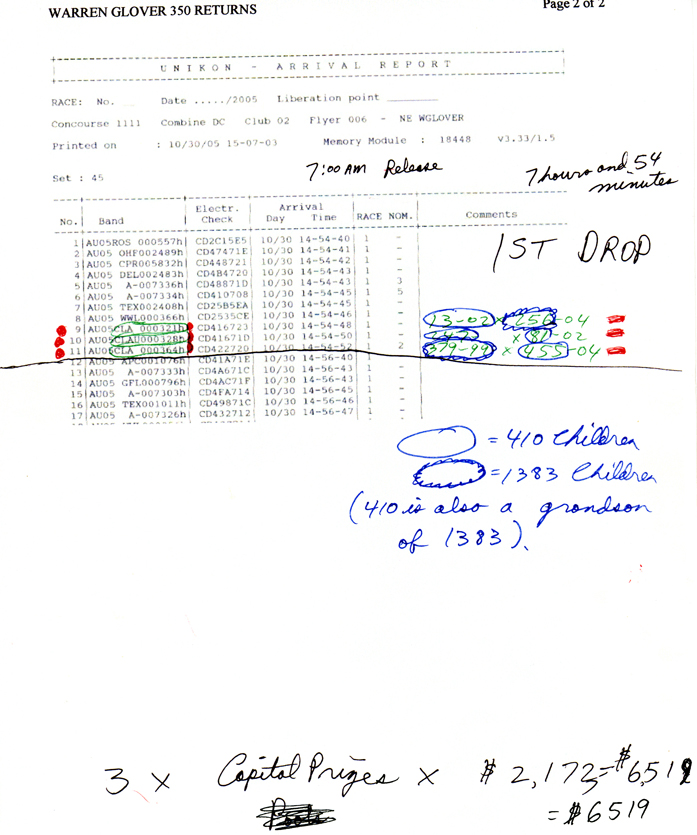 WARREN GLOVER 350 RETURNS
Page 2 of 2
UNIKON - ARRIVAL REPORT
RACE: No. Date ...../2005 Liberation point
Concourse 1111 Combine DC Club 02 Flyer 006 - NE WGLOVER
Printed on : 10/30/05 15-07-03 Memory Module : 18448 V3.33/1.5
7:00 AM Release
7 hours and 54 minutes
Set : 45
No. Band Electr. Check Arrival Day Time RACE NOM. Comments
1ST DROP
1 AU05ROS 000557h CD2C15E5 10/30 14-54-40 1 -
2 AU05 OHF002489h CD47471E 10/30 14-54-41 1 -
3 AU05 CPR005832h CD448721 10/30 14-54-42 1 -
4 AU05 DEL002483h CD4B4720 10/30 14-54-43 1 -
5 AU05 A-007336h CD48871D 10/30 14-54-43 1 3
6 AU05 A-007334h CD410708 10/30 14-54-45 1 5
7 AU05 TEX002408h CD25B5EA 10/30 14-54-45 1 -
8 AU05 WWL000366h CD2535CE 10/30 14-54-46 1 -
9 AU05CLA 000321h CD416723 10/30 14-54-48 1 - 13-02 x 256-04
10 AU05CLAU000328h CD41671D 10/30 14-54-50 1 - x 81-02
11 AU05CLA 000364h CD422720 10/30 14-54-52 1 2 379-99 x 455-04
12 AU05 APC001076h CD41A71E 10/30 14-56-40 1 -
13 AU05 A-007333h CD4A671C 10/30 14-56-43 1 -
14 AU05 GFL000796h CD4AC71F 10/30 14-56-43 1 -
15 AU05 A-007303h CD4FA714 10/30 14-56-45 1 -
16 AU05 TEX001011h CD49871C 10/30 14-56-46 1 -
17 AU05 A-007326h CD432712 10/30 14-56-47 1 -
= 410 Children
= 1383 Children
(410 is also a grandson
of 1383).
3 x Capital Prizes x $ 2,173 = $6,519
= $6519